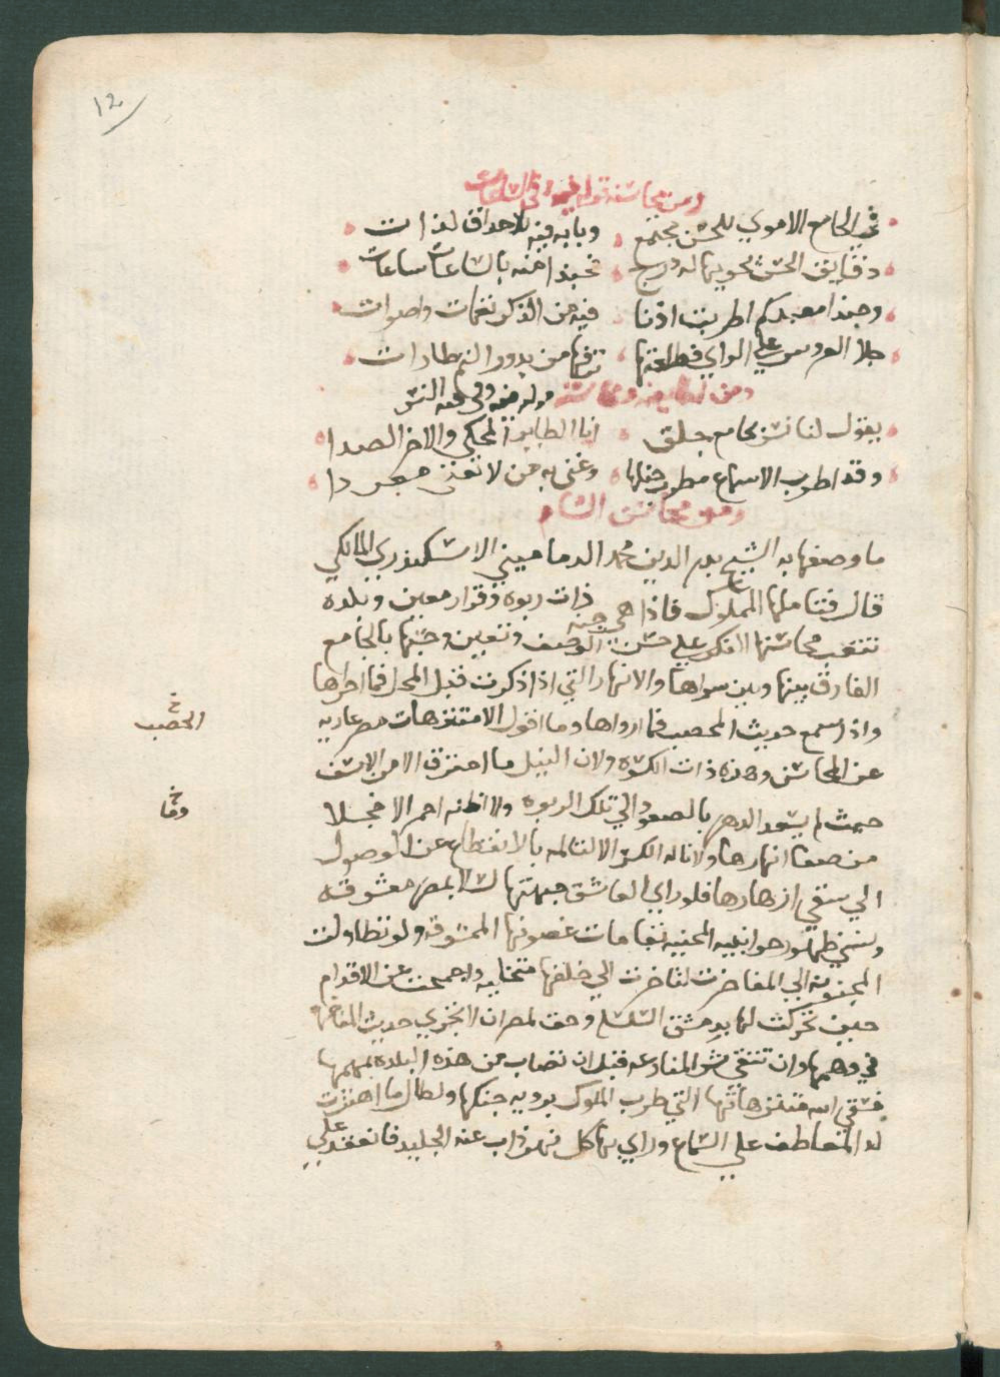 12
ومن محاسنه قوله فيه وفي الساعات
في الجامع الاموي للحسن مجتمع وبابه فيه للاحداق لذات
دقايق الحسن يحويها له درج فحبذا منه بالساعات ساعات
وحبذا معبدكم اطربت اذنا فيه من الذكر نغمات واصوات
جلا العروس علي الراي فطلعتها تزفها من بدور التم طارات
ومن لطايفه ومحاسنه قوله فيه وفي النسر
يقول لنا نسر بجامع جلق انا الطاير المحكي والاخر الصدا
وقد اطرب الاسماع مطرب جنكها وغني به من لا تغني مغردا
ومن محاسن الشام
ما وصفها به الشيخ بدر الدين محمد الدماميني الاسكندري المالكي
قال فتاملها المملوك فاذا هي جنة ذات ربوة وقرار معين وبلدة
تبعث محاسنها الفكر علي حسن الوصف وتعين وحبها بالجامع
الفارق بينها وبين سواها والانهار التي اذا ذكرت قبل المحل فما اجراها
واذا سمع حديث المحصب فما ارواها وما اقول الا متنزهات مصر عارية
عن المحاسن وهذه ذات الكسوة ولان النيل ما احترق الا من الاسف
حيث لم يسعد الدهر بالصعود الي تلك الربوة ولا اظنه احمر الا خجلا
من صفا انهارها ولا ناله الكسر الا لتالمه بالانقطاع عن الوصول
الي سقي ازهارها فلو راي العاشق جبهتها لسلا بمصر معشوقه
ونسي ظهور حوانيه المحنية بقامات غصونها الممشوقة ولو تطاولت
الجنوبة الي المفاخرت لتاخرت الي خلفها متخابيه واحجمت عن الاقدام
حين تحركت لها بدمشق السلسلة وحق لمصر ان لا تجري حديث المفاخرة
في وهمها وان تتقي شر المنازعة قبل ان تصاب من هذه البلدة بسهمها
فسقي الله متنزهاتها التي طرب الملوك بروية جنكها ولطال ما اهتزت
له المعاطف علي السماع وراي بها كل نهر ذاب عنه الجليد فانعقد علي
خ
الخصب
خ
وما